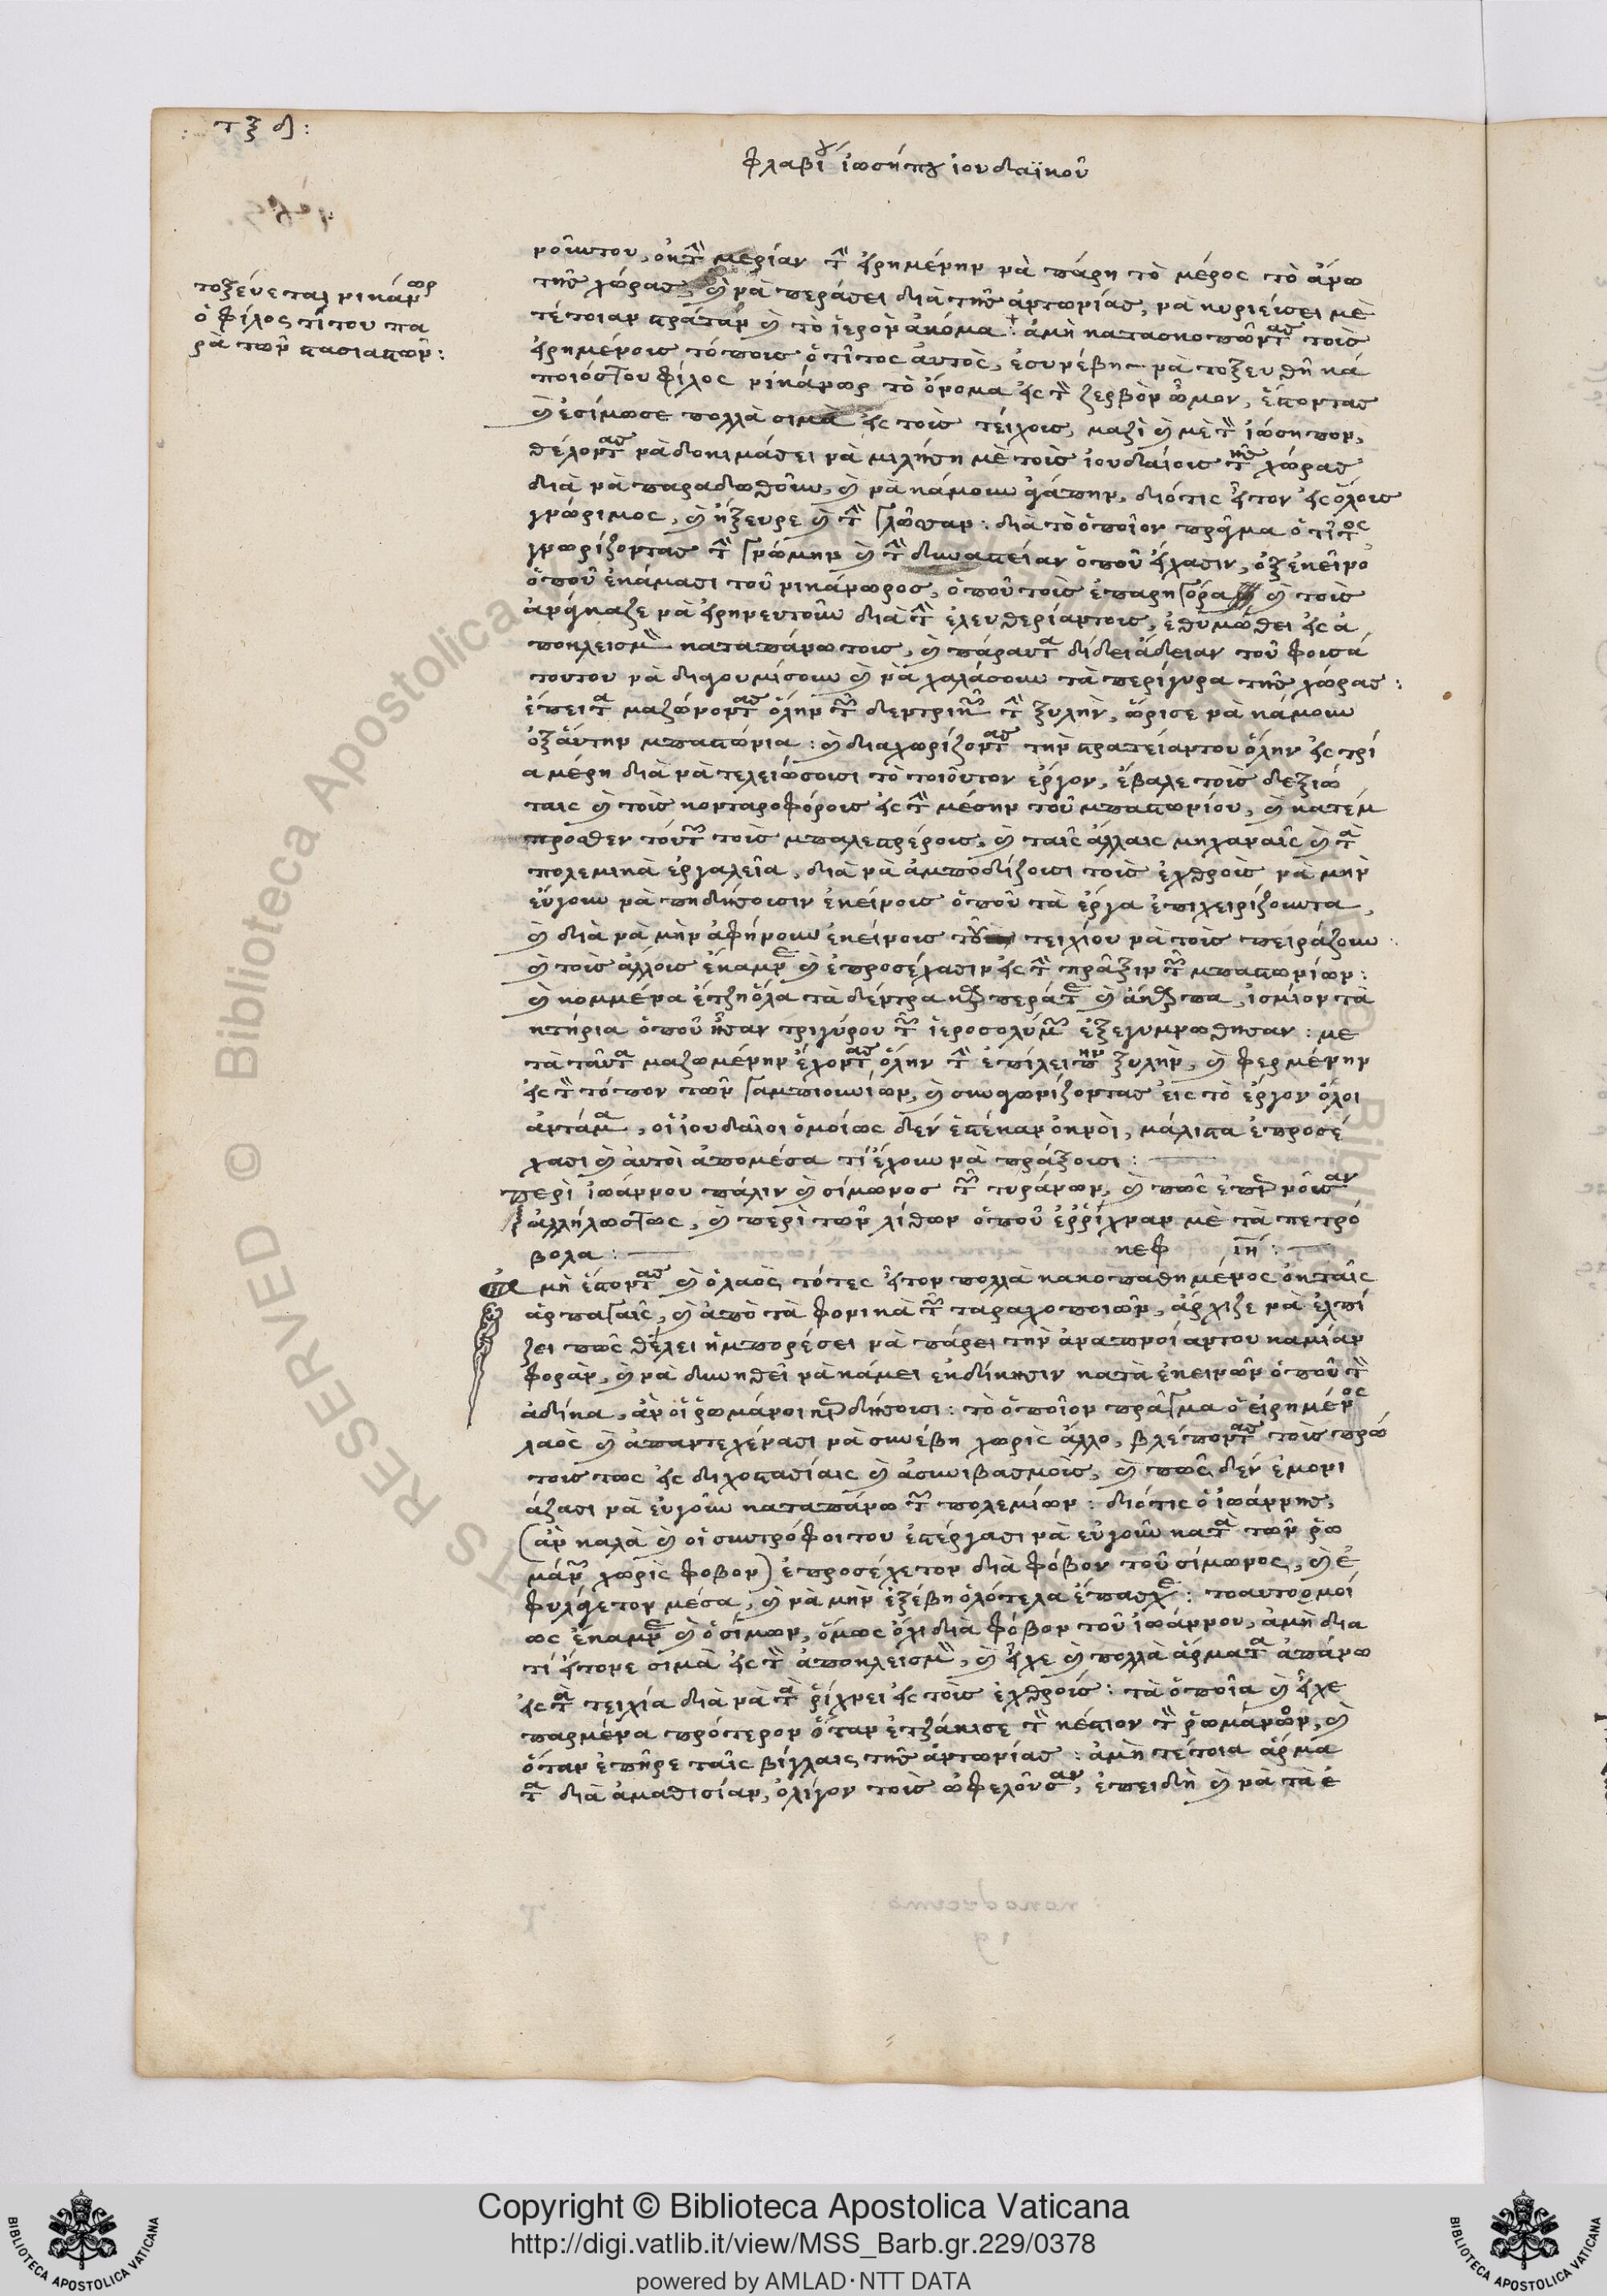 : τξδ :
φλαβίου ἰωσήπου ἰουδαϊκοῦ
τοξεύεται νικάνωρ
ὁ φίλος τίτου πα
ρὰ τῶν στασιαστῶν :
μερίαν τὴν εἰρημένην νὰ πάρη τὸ μέρος τὸ ἄνω
τῆς χώρας, καὶ νὰ περάσει διὰ τῆς ἀντωνίας, νὰ κυριεύσει μὲ
τέτοιαν στράταν καὶ τὸ ἱερὸν ἀκόμα. ἀμὴ κατασκοπῶντας τοὺς
εἰρημένους τόπους ὁ τίτος αὐτὸς, ἐσυνέβη νὰ τοξευθῆ κά
ποιός του φίλος νικάνωρ τὸ ὄνομα εἰς τὸν ζερβὸν ὦμον, ἔστοντας
καὶ ἐσίμωσε πολλὰ σιμὰ εἰς τοὺς τείχους, μαζὶ καὶ μὲ τὸν ἰώσηπον,
θέλοντας νὰ δοκιμάσει νὰ μιλήση μὲ τοὺς ἰουδαίους τῆς χώρας
διὰ νὰ παραδωθοῦν, καὶ νὰ κάμουν ἀγάπην, διότις ἦτον εἰς ὅλους
γνώριμος, καὶ ἤξευρε καὶ τὴν γλῶσσαν : διὰ τὸ ὁποῖον πρᾶγμα ὁ τίτος
γνωρίζοντας τὴν γνώμην καὶ τὴν δυναστείαν ὁποῦ εἴχασιν, ἐξ ἐκεῖνο
ὁποῦ ἐκάμασι τοῦ νικάνωρος, ὁποῦ τοὺς ἐπαρηγόρα καὶ τοὺς
ἀνάγκαζε νὰ εἰρηνευτοῦν διὰ τὴν ἐλευθερίαν τους, ἐθυμώθει εἰς ἀ
ποκλεισμὸν καταπάνω τους, καὶ πάραυτα δίδει ἄδειαν τοῦ φουσά
του του νὰ διαγουμίσουν καὶ νὰ χαλάσουν τὰ περίγυρα τῆς χώρας :
ἔπειτα μαζώνοντας ὅλην τὴν δεντρικὴν τὴν ξυλὴν, ὥρισε νὰ κάμουν
ἐξ αὔτην μπαστιόνια : καὶ διαχωρίζοντας τὴν στρατείαν του ὅλην εἰς τρί
α μέρη διὰ νὰ τελειώσουσι τὸ τοιοῦτον ἔργον, ἔβαλε τοὺς δεξιώ
ταις καὶ τοὺς κονταροφόρους εἰς τὴν μέσην τοῦ μπαστωνίου, καὶ κατέμ
προσθεν τούτων τοὺς μπαλεστρέρους, καὶ ταῖς ἄλλαις μηχαναῖς καὶ τὰ
πολεμικὰ ἐργαλεῖα, διὰ νὰ ἀμποδίζουσι τοὺς ἐχθροὺς νὰ μὴν
εὔγουν νὰ πηδήσουσιν ἐκείνους ὁποῦ τὰ ἔργα ἐπιχειρίζουνται,
καὶ διὰ νὰ μὴν ἀφήνουν ἐκείνους τοῦ τειχίου νὰ τοὺς πειράζουν
καὶ τοὺς ἄλλους ἔκαμνε καὶ ἐπροσέχασιν εἰς τὴν πρᾶξιν τῶν μπαστωνίων :
καὶ κομμένα ἔτζη ὅλα τὰ δέντρα
κητήρια ὁποῦ ἦσαν τριγύρου τῶν ἱεροσολύμων ἐξεγυμνωθησαν : με
τὰ ταῦτα μαζωμένην ἔχοντας ὅλην τὴν ἐπίλειπην ξυλὴν, καὶ φερμένην
εἰς τὸν τόπον τῶν γαμπιουνίων, καὶ συναγωνίζοντας εἰς τὸ ἔργον ὅλοι
ἀντάμα, οἱ ἰουδαῖοι ὁμοίως δὲν ἐστέκαν ὀκνοὶ, μάλιστα ἐπροσέ
χασι καὶ αὐτοὶ ἀπομέσα τί ἔχουν νὰ πράξουσι :
Περὶ ἰωάννου πάλιν καὶ σίμωνος τῶν τυράνων,
ἀλλήλως τως, καὶ περὶ τῶν λίθων ὁποῦ ἐρρίχναν μὲ τὰ πετρό
βολα : κεφ ιη :
μὴ ἔστοντας καὶ ὁ λαὸς τότες ἦτον πολλὰ κακοπαθημένος ἐκ ταῖς
ἁρπαγαῖς, καὶ ἀπὸ τὰ φονικὰ τῶν ταραχοποιῶν, ἄρχιζε νὰ ἐλπί
ζει πῶς θέλει ἡμπορέσει νὰ πάρει τὴν ἀναπνοίαν του καμίαν
φορὰν, καὶ νὰ δυνηθεῖ νὰ κάμει ἐκδίκησιν κατὰ ἐκεινῶν ὁποῦ τὸν
ἀδίκα, ἂν οἱ ῥωμάνοι κερδήσουσι : τὸ ὁποῖον πρᾶγμα ὁ εἰρημένος
λαὸς καὶ ἀπαντεχένασι νὰ συνέβη χωρὶς ἄλλο, βλέποντας τοὺς πρώ
τους τως εἰς διχοστασίαις καὶ ἀσυνιβασμοὺς, καὶ πῶς δὲν ἐμονι
άζασι νὰ εὐγοῦν καταπάνω τῶν πολεμίων : διότις ὁ ἰωάννης,
(ἂν καλὰ καὶ οἱ συντρόφοι του ἐστέργασι νὰ εὐγοῦν κατὰ τῶν ῥω
μάνων χωρὶς φοβον) ἐπροσέχετον διὰ φόβον τοῦ σίμωνος, καὶ ἐ
φυλάγετον μέσα, καὶ νὰ μὴν ἐξέβη ὁλότελα ἔπασχε : τοαυτοομοί
ως ἔκαμνε καὶ ὁ σίμων, ὅμως ὄχι διὰ φόβον τοῦ ἰωάννου, ἀμὴ δια
τί ἦτονε σιμὰ εἰς τὸν ἀποκλεισμὸν, καὶ εἶχε καὶ πολλὰ ἅρματα ἀπάνω
εἰς τὰ τειχία διὰ νὰ τὰ ῥίχνει εἰς τοὺς ἐχθροὺς : τὰ ὁποῖα καὶ εἶχε
παρμένα πρότερον ὅταν ἐτζάκισε τὸν κέστιον τὸν ῥωμάνον, καὶ
ὅταν ἐπῆρε ταῖς βίγλαις τῆς ἀντωνίας : ἀμὴ τέτοια ἅρμα
τα διὰ ἀμαθισίαν, ὀλίγον τοὺς ὠφελοῦσαν, ἐπειδὴ καὶ νὰ τὰ ἐ
Copyright © Biblioteca Apostolica Vaticana
http://digi.vatlib.it/view/MSS_Barb.gr.229/0378
powered by AMLAD·NTT DATA